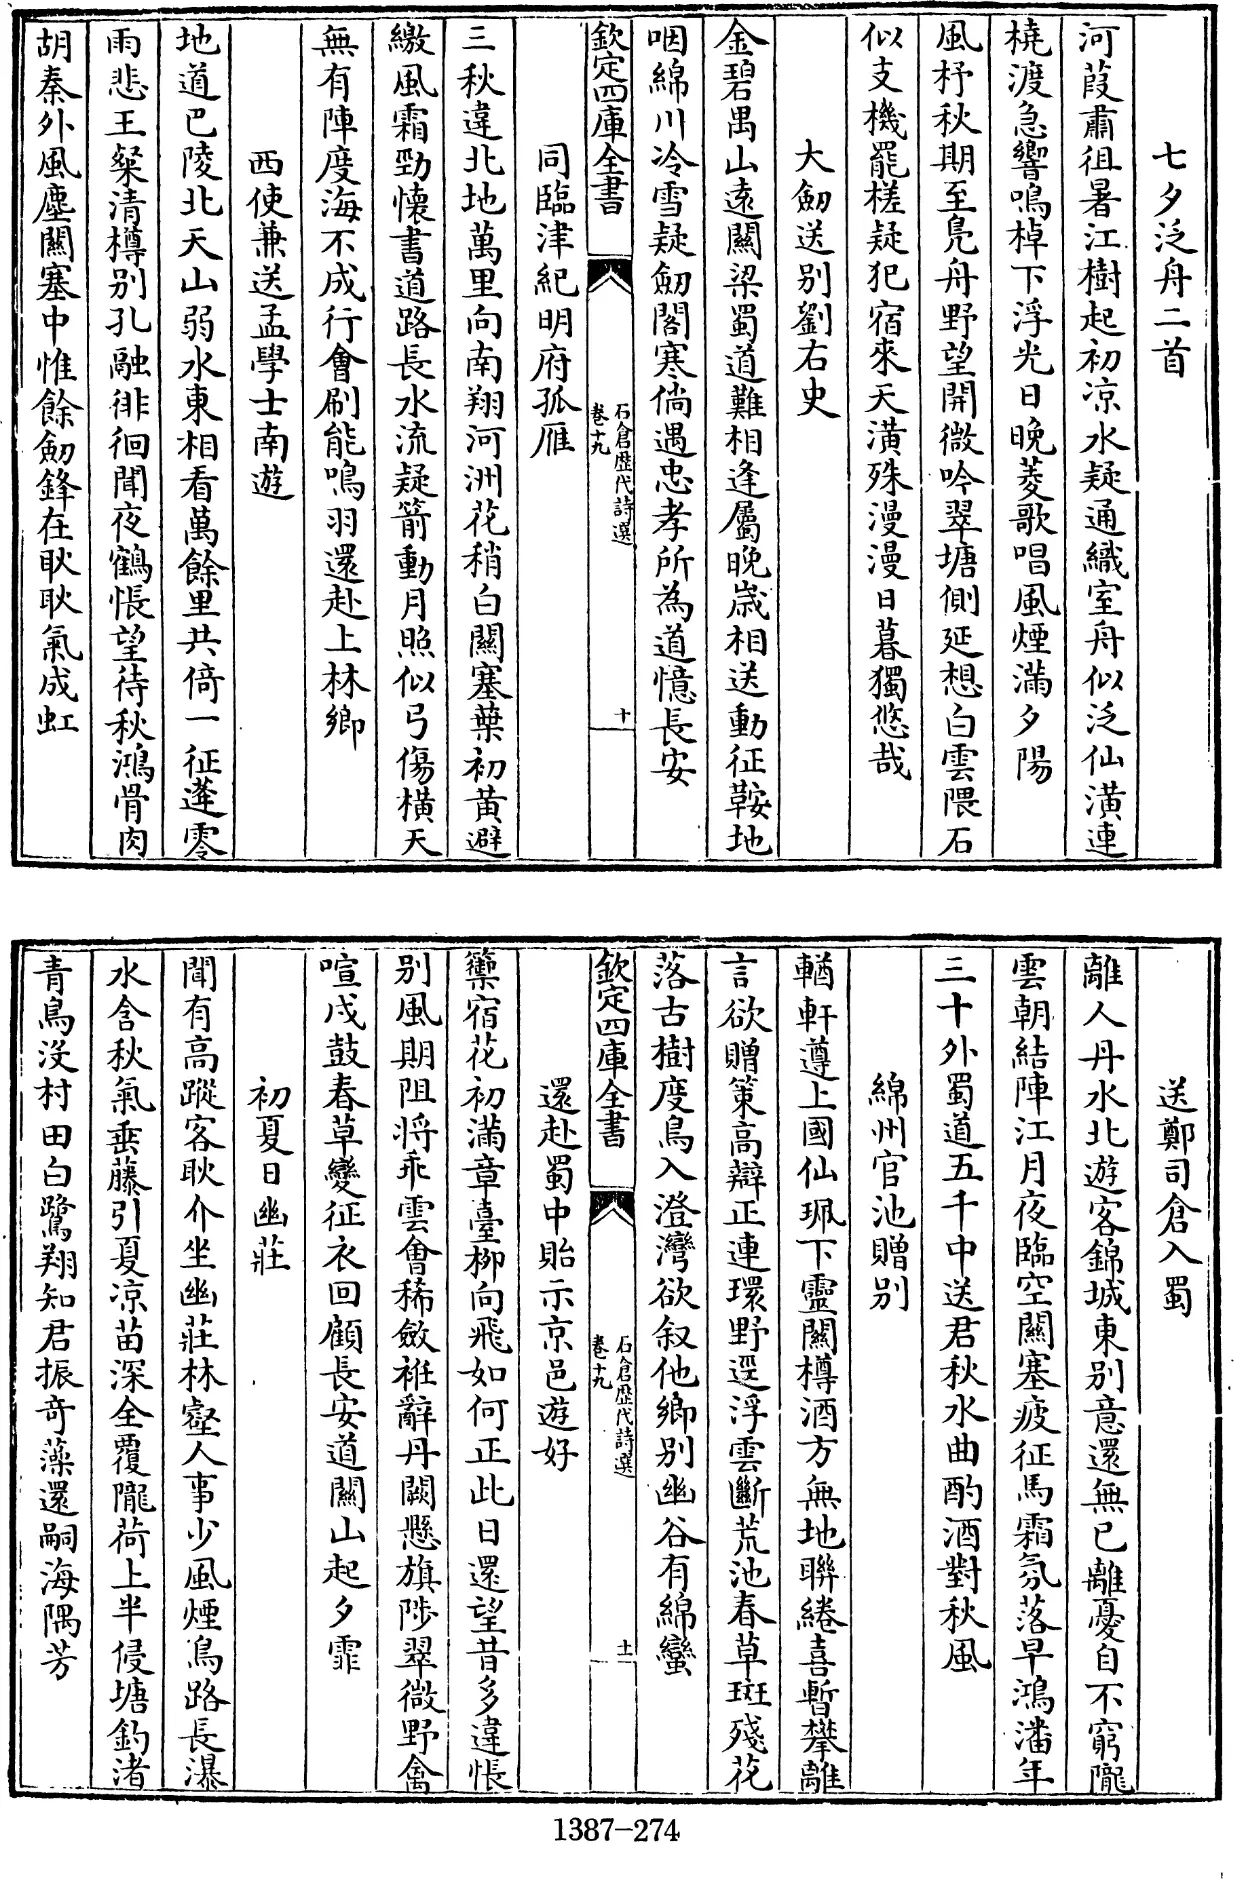 七夕泛舟二首
河葭肅徂暑江樹起初凉水疑通織室舟似泛仙潢連
橈渡急響鳴棹下浮光日晚菱歌唱風煙滿夕陽
風杼秋期至鳧舟野望開微吟翠塘側延想白雲隈石
似支機罷槎疑犯宿來天潢殊漫漫日暮獨悠哉
大劒送别劉右史
金碧禺山遠關梁蜀道難相逢屬晚歲相送動征鞍地
咽綿川冷雪疑劒閣寒倘遇忠孝所為道憶長安
欽定四庫全書
石倉歷代詩選
卷十九
十
同臨津紀明府孤雁
三秋違北地萬里向南翔河洲花稍白關塞葉初黄避
繳風霜勁懷書道路長水流疑箭動月照似弓傷横天
無有陣度海不成行會刷能鳴羽還赴上林鄉
西使兼送孟學士南遊
地道巴陵北天山弱水東相看萬餘里共倚一征蓬零
雨悲王粲清樽别孔融徘徊聞夜鶴悵望待秋鴻骨肉
胡秦外風塵關塞中惟餘劒鋒在耿耿氣成虹
送鄭司倉入蜀
離人丹水北遊客錦城東别意還無已離憂自不窮隴
雲朝結陣江月夜臨空關塞疲征馬霜氛落早鴻潘年
三十外蜀道五千中送君秋水曲酌酒對秋風
綿州官池贈别
輶軒遵上國仙珮下靈關樽酒方無地聯綣喜暫攀離
言欲贈策高辯正連環野逕浮雲斷荒池春草斑殘花
落古樹度鳥入澄灣欲叙他鄉别幽谷有綿蠻
欽定四庫全書
石倉歷代詩選
卷十九
十一
還赴蜀中貽示京邑遊好
籞宿花初滿章臺柳向飛如何正此日還望昔多違悵
别風期阻將乖雲會稀斂袵辭丹闕懸旗陟翠微野禽
喧戍鼓春草變征衣回顧長安道關山起夕霏
初夏日幽莊
聞有高蹤客耿介坐幽莊林壑人事少風煙鳥路長瀑
水含秋氣垂藤引夏凉苗深全覆隴荷上半侵塘釣渚
青鳧沒村田白鷺翔知君振奇藻還嗣海隅芳
1387-274